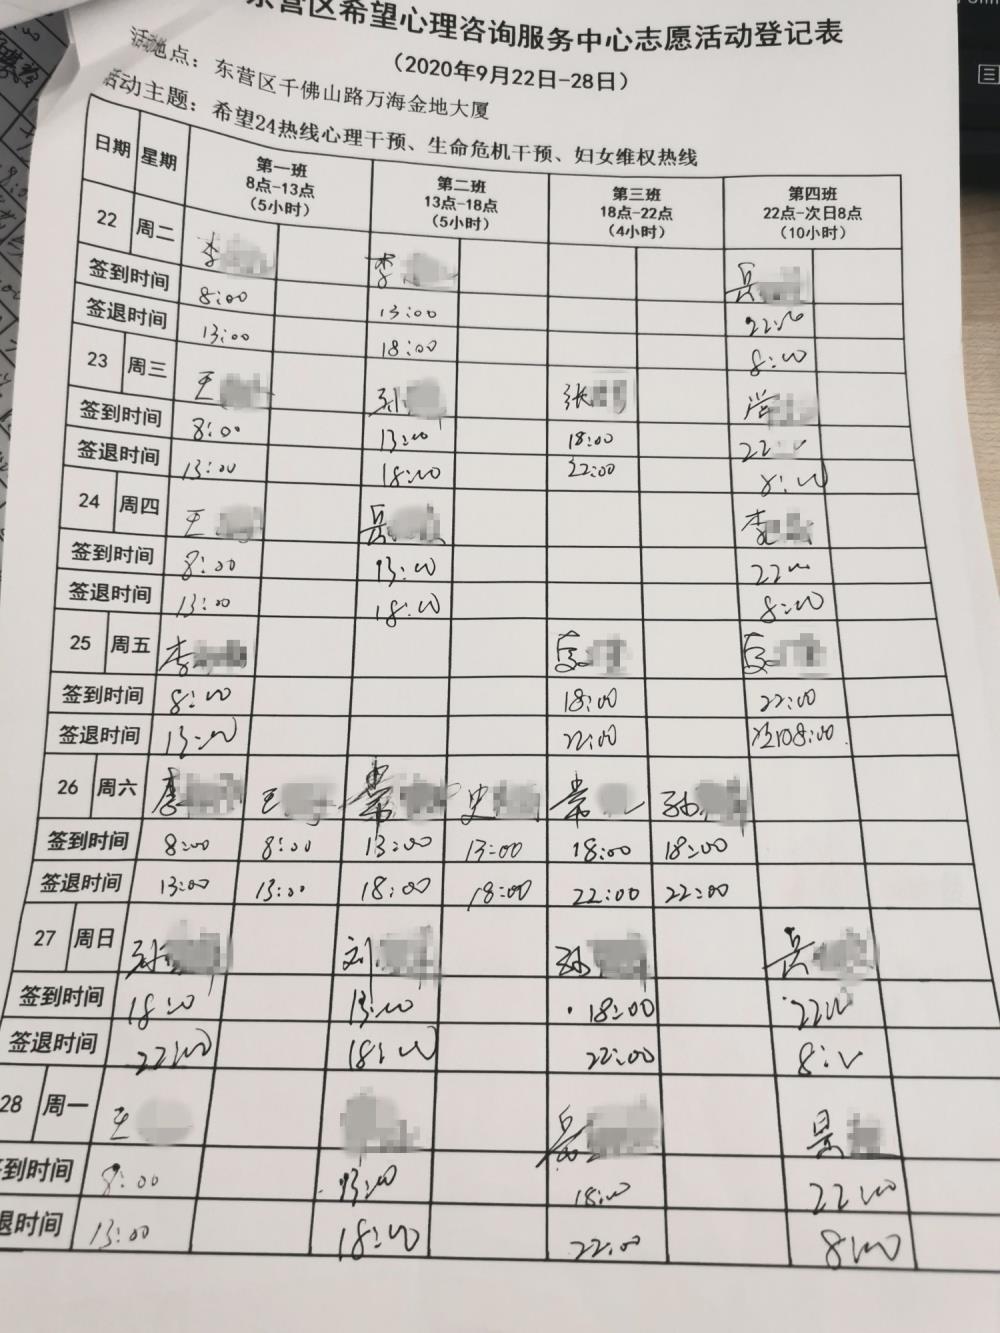 东营区希望心理咨询服务中心志愿活动登记表
（2020年9月22日-28日）
活动地点：东营区千佛山路万海金地大厦
活动主题：希望24热线心理干预、生命危机干预、妇女维权热线
日期 星期 第一班 第二班 第三班 第四班
8点-13点 13点-18点 18点-22点 22点-次日8点
（5小时） （5小时） （4小时） （10小时）
22 周二 李 李 吴
签到时间 8:00 13:00 22:00
签退时间 13:00 18:00 8:00
23 周三 王 孙 张
签到时间 8:00 13:00 18:00 22
签退时间 13:00 18:00 22:00 8:00
24 周四 王 吴 李
签到时间 8:00 13:00 22:00
签退时间 13:00 18:00 8:00
25 周五 李
签到时间 8:00 18:00 22:00
签退时间 13:00 22:00 次日8:00
26 周六 李 王 常 史 常 孙
签到时间 8:00 8:00 13:00 13:00 18:00 18:00
签退时间 13:00 13:00 18:00 18:00 22:00 22:00
27 周日 孙 刘 孙 吴
签到时间 18:00 13:00 18:00 22:00
签退时间 22:00 18:00 22:00 8:00
28 周一 王 岳 吴
到时间 8:00 13:00 18:00 22:00
退时间 13:00 18:00 22:00 8:00